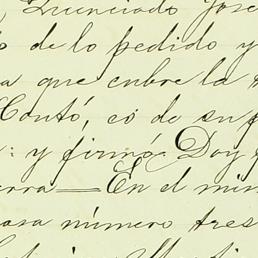 Licenciado José
de lo pedido y
a que cubre la
Contó, es de su p
: y firmó. Doy f
erra—En el mis
casa número tres